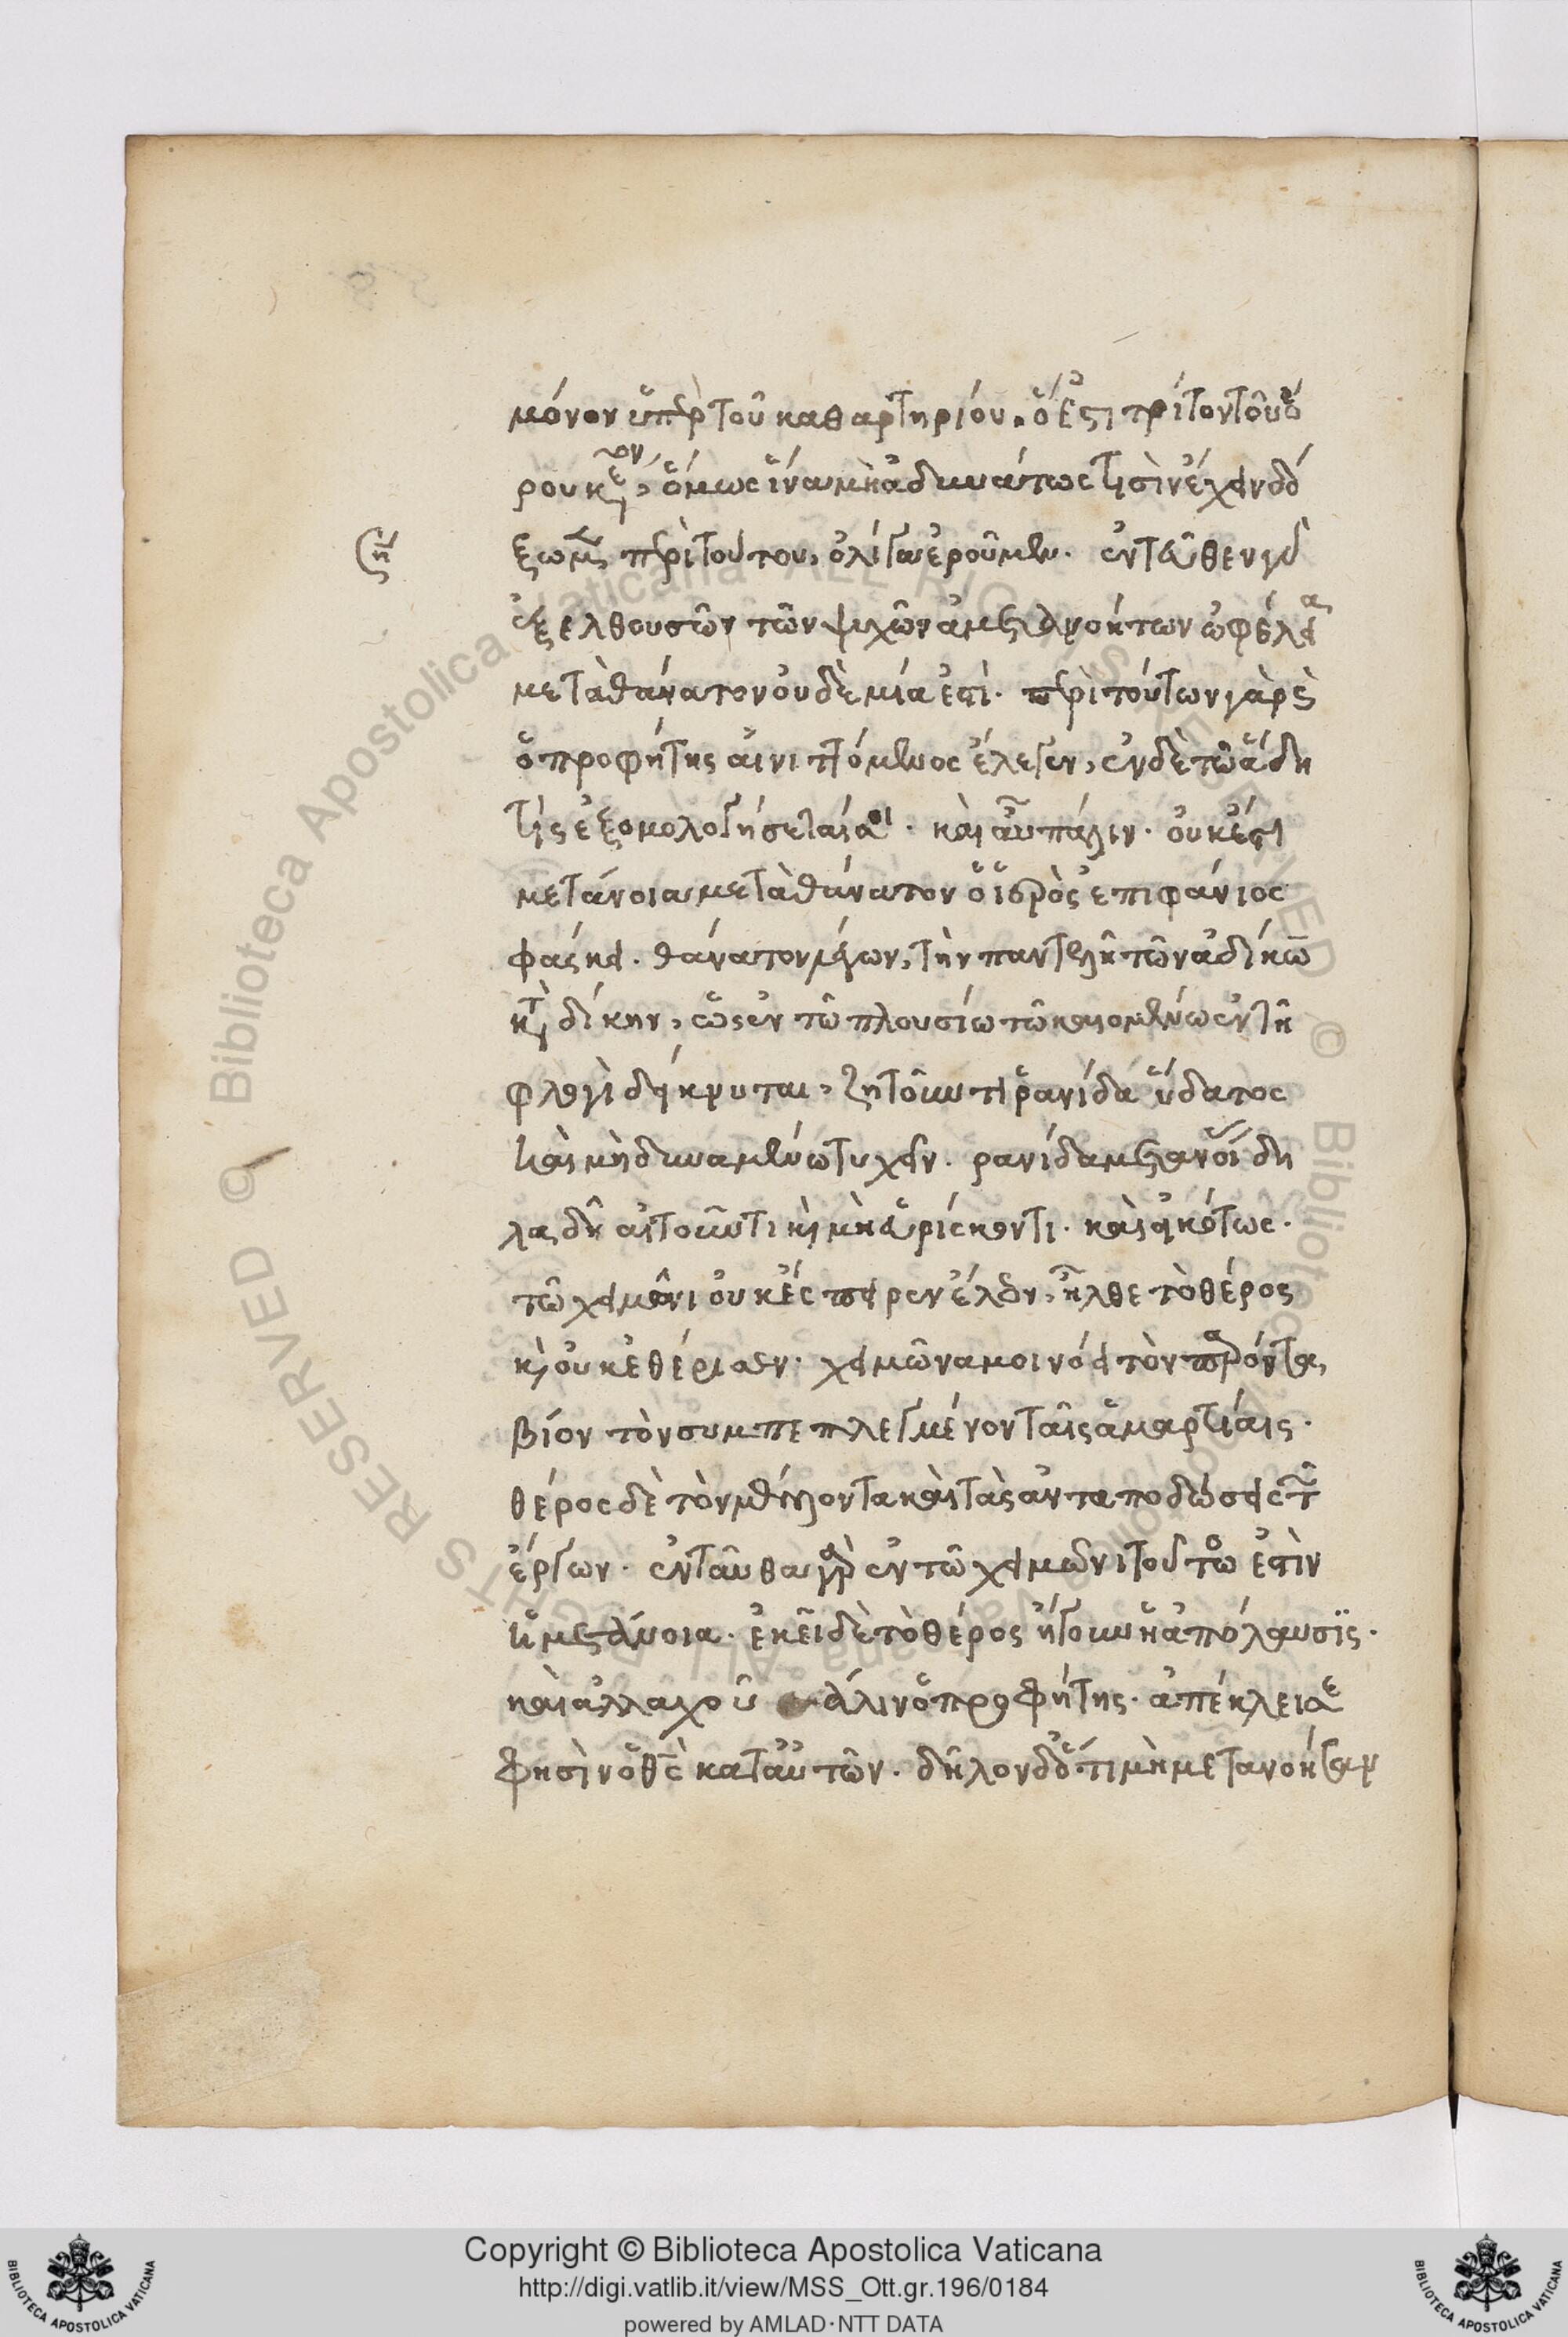 μόνον ὑπὲρ τοῦ καθαρτηρίου. ὅ ἐστι τρίτον τοῦ ὅ
ρου κεφάλαιον, ὅμως ἵνα μὴ ἀδυνάτως τισὶν ἔχειν δό
ξωμεν περὶ τούτου, ὀλίγα ἐροῦμεν. ἐντεῦθεν γὰρ
ἐξελθουσῶν τῶν ψυχῶν ἀμετανοήτων ὠφέλεια
μετὰ θάνατον οὐδὲ μία ἐστί. περὶ τούτων γὰρ καὶ
ὁ προφήτης αἰνιττόμενος ἔλεγεν, ἐν δὲ τῶ ἅδη
τίς ἐξομολογήσεταί σοι. καὶ αὖ πάλιν. οὐκ ἔστι
μετάνοια μετὰ θάνατον ὁ ἱερὸς ἐπιφάνιος
φάσκει. θάνατον λέγων, τὴν παντελῆ τῶν ἀδίκων
καταδίκην, ὡς ἐν τῶ πλουσίω τῶ καιομένω ἐν τῆ
φλογὶ δείκνυται, ζητοῦντι ῥανίδα ὕδατος
καὶ μὴ δυναμένω τυχεῖν. ρανίδα μετανοίας δη
λαδὴ αἰτοῦντι καὶ μὴ εὑρίσκοντι. καὶ εἰκότως.
τῶ χειμῶνι οὐκ ἔσπειρεν ἔλαιον, ἦλθε τὸ θέρος
καὶ οὐκ ἐθέρισεν. χειμῶνα μοι νόει τὸν παρόντα
βίον τὸν συμπεπλεγμένον ταῖς ἁμαρτίαις.
θέρος δὲ τὸν μέλλοντα καὶ τὰς ἀνταποδώσεις τῶν
ἔργων. ἐνταῦθα γὰρ ἐν τῶ χειμῶνι τούτω ἐστὶν
ἡ μετάνοια. ἐκεῖ δὲ τὸ θέρος ἤγουν ἡ ἀπόλαυσϊς.
καὶ ἀλλαχοῦ πάλιν ὁ προφήτης. ἀπέκλεισε
φησὶν ὁ θεὸς κατ' αὐτῶν. δῆλον δὲ ὅτι μὴ μετανοήσαν